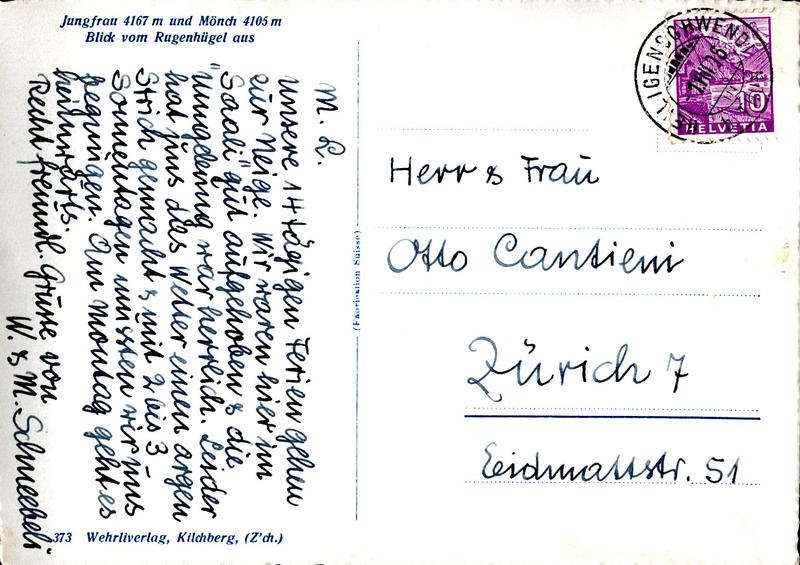 Jungfrau 4167 m und Mönch 4105 m
Blick vom Rugenhügel aus
M. L.
Unsere 14 tägigen Ferien gehen
zur Neige. Wir waren hier im
"Saali" gut aufgehoben & die
Umgebung war herrlich. Leider
hat uns das Wetter einen argen
Strich gemacht & mit 2 bis 3
Sonnentagen mussten wir uns
begnügen. Am Montag geht es
heimwärts.
Recht freundl. Grüsse von
W. & M. Schneebeli
373 Wehrliverlag, Kilchberg, (Z'ch.)
(Fabrication Suisse)
HEILIGENSCHWENDI
10
HELVETIA
Herr & Frau
Otto Cantieni
Zürich 7
Eidmattstr. 51